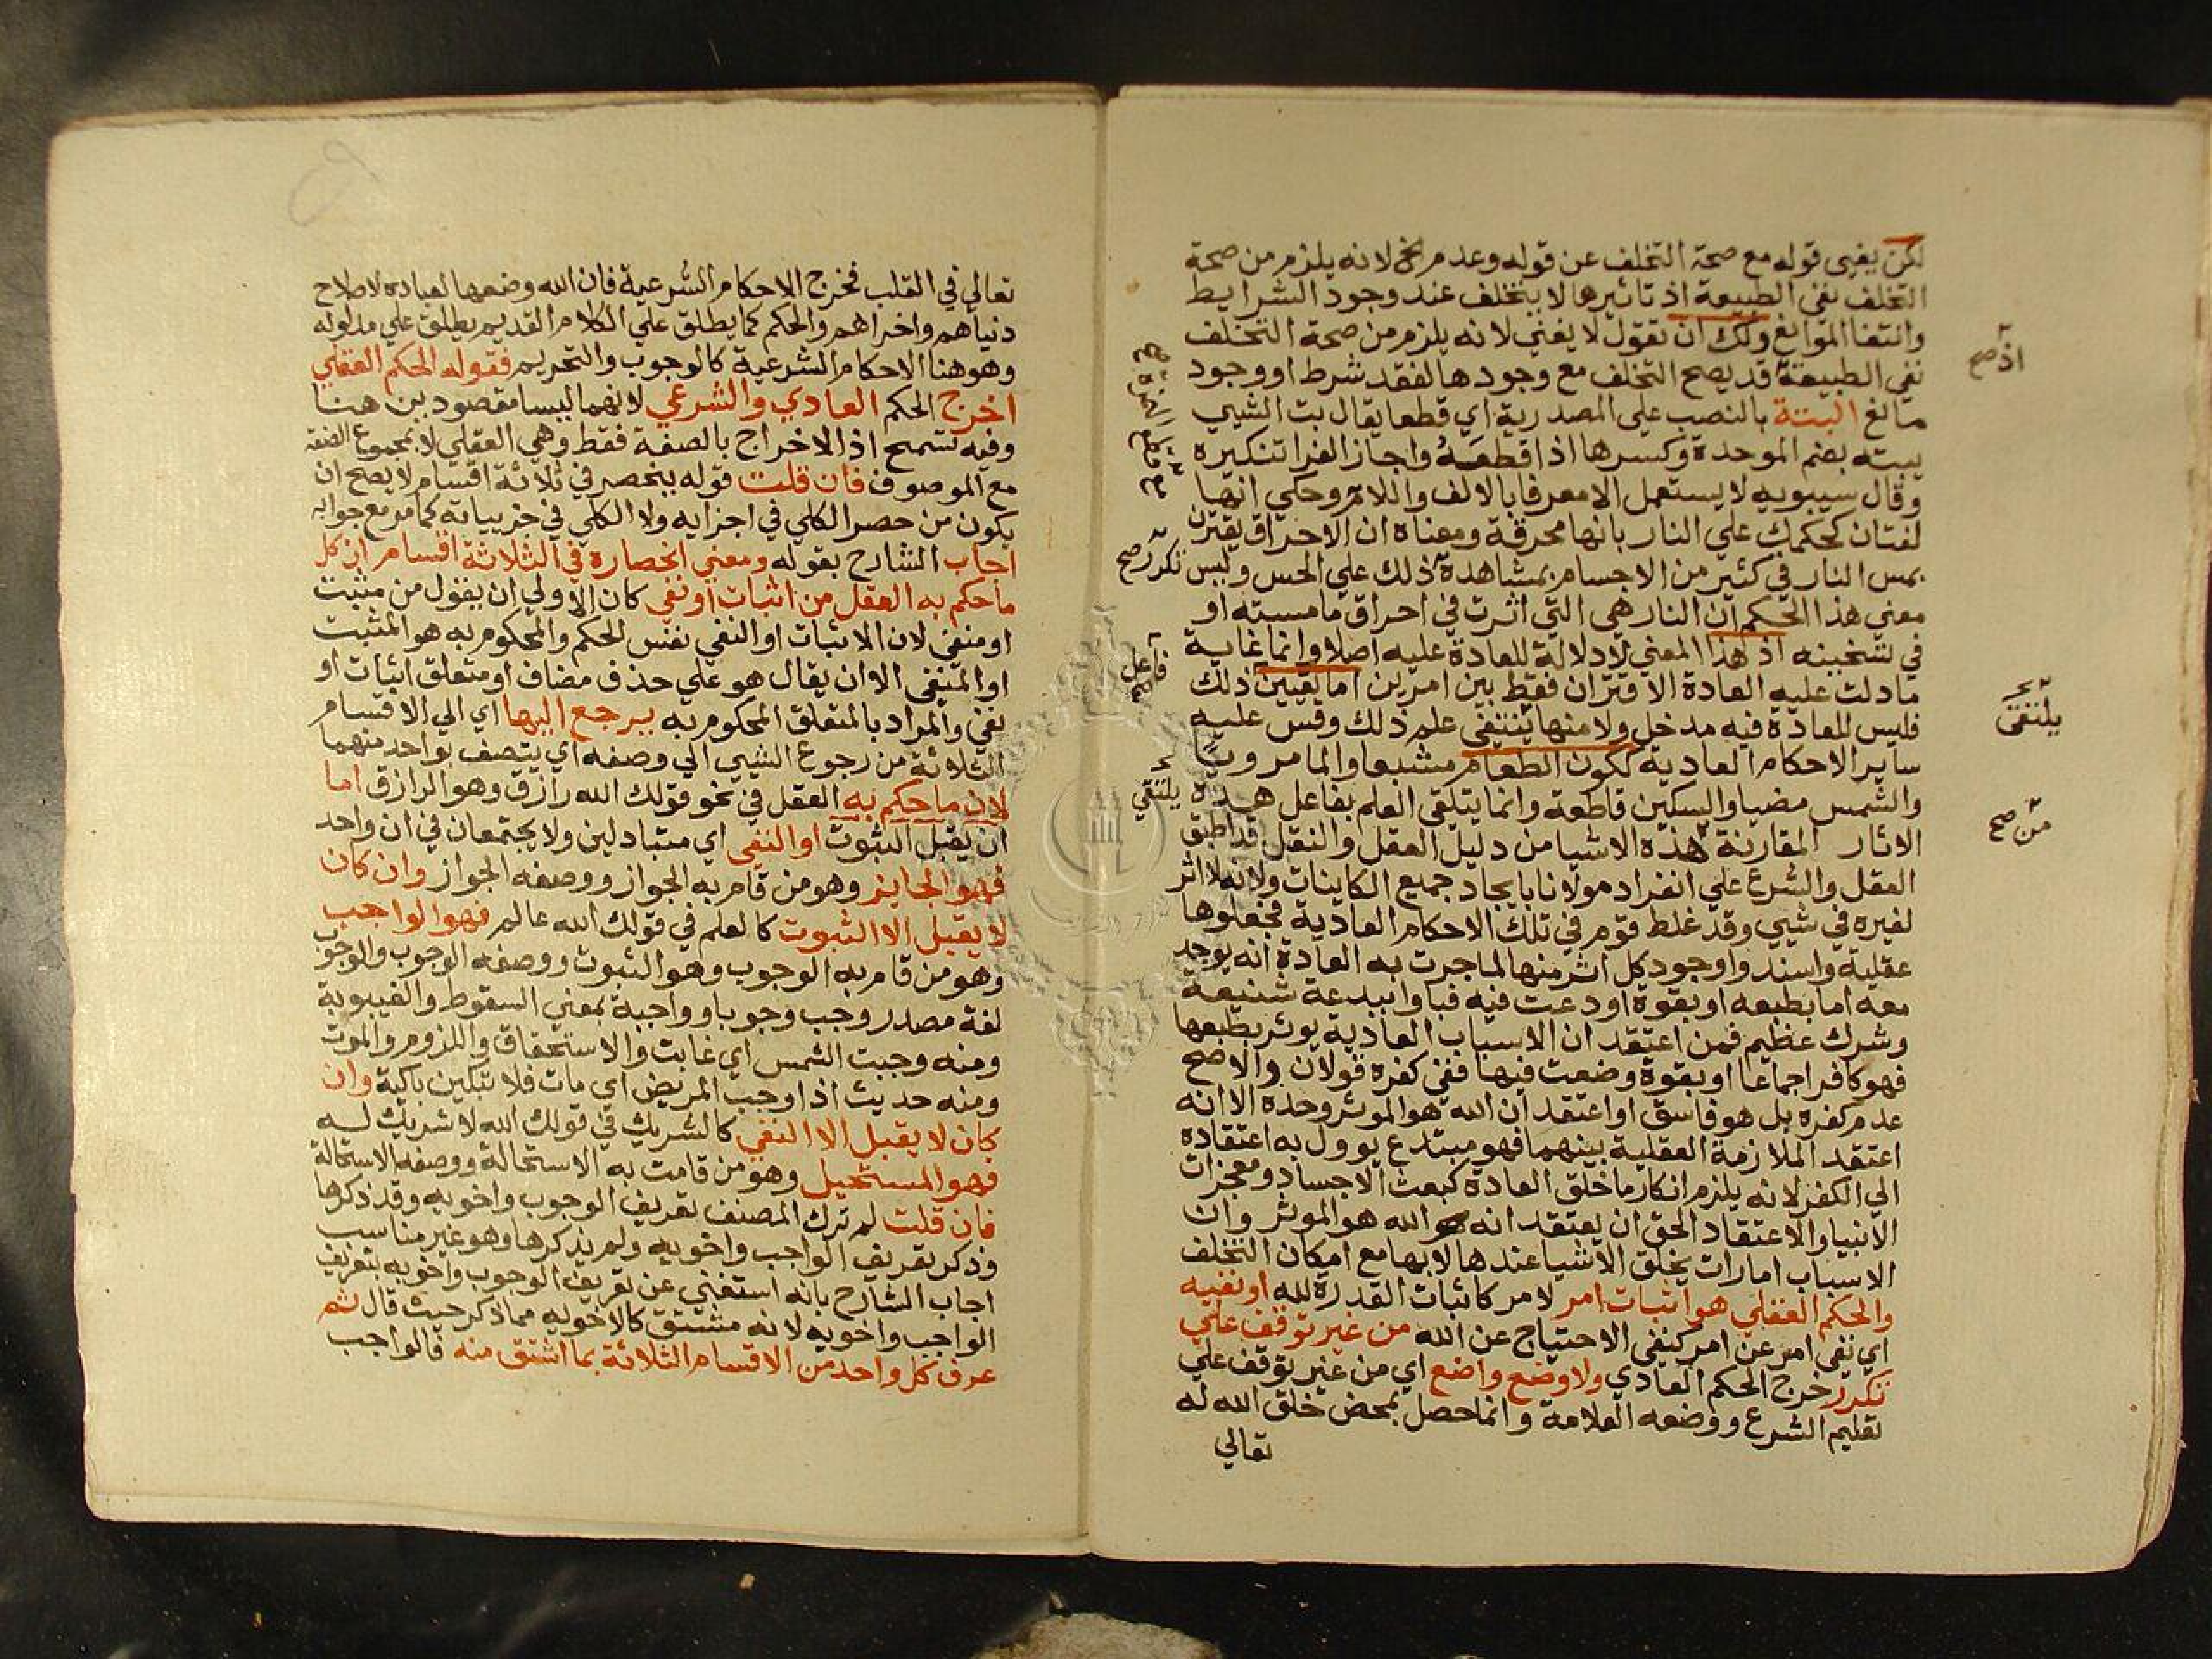 لكن يغني قوله مع صحة التخلف عن قوله وعدم الخ لانه يلزم من صحة
التخلف نفي الطبيعة اذ تاثيرها لا يتخلف عند وجود الشرايط
وانتفا الموانع ولك ان تقول لا يغني لانه يلزم من صحة التخلف
نفي الطبيعة قد يصح التخلف مع وجودها لفقد شرط او وجود
اذ صح
مانع البتة بالنصب علي المصدرية اي قطعا يقال بت الشيي
يبته بضم الموحدة وكسرها اذا قطعه واجاز الفرا تنكيره
وقال سيبويه لا يستعمل الا معرفا بالالف واللام وحكي انها
لغتان كحكمك علي النار بانها محرقة ومعناه ان الاحراق يقترن
بمس النار في كثير من الاجسام بمشاهدة ذلك علي الحس وليس
تكرر صح
معني هذا الحكم ان النار هي التي اثرت في احراق ما مسته او
في تسخينه اذ هذا المعني لا دلالة للعادة عليه اصلا وانما غاية
ما دلت عليه العادة الاقتران فقط بين امرين اما تعيين ذلك
فاعل
فليس للعادة فيه مدخل ولا منها ينتفي علم ذلك وقس عليه
يلتقي
ساير الاحكام العادية ككون الطعام مشبعا والما مرويا
والشمس مضيا والسكين قاطعة وانما يتلقي العلم بفاعل هذه
يلتقي
الاثار المقارنة هذه الاشيا من دليل العقل والنقل قد اطبق
من صح
العقل والشرع علي انفراد مولانا بايجاد جميع الكاينات ولانه لا اثر
لغيره في شيي وقد غلط قوم في تلك الاحكام العادية فجعلوها
عقلية واسندوا وجود كل اثر منها لما جرت به العادة انه يوجد
معه اما بطبعه او بقوة اودعت فيه فباوا ببدعة شنيعة
وشرك عظيم فمن اعتقد ان الاسباب العادية يوثر بطبعها
فهو كافر اجماعا او بقوة وضعت فيها ففي كفره قولان والاصح
عدم كفره بل هو فاسق او اعتقد ان الله هو الموثر وحده الا انه
اعتقد الملازمة العقلية بينهما فهو مبتدع يوول به اعتقاده
الي الكفر لانه يلزم انكار ما خلق العادة كبعث الاجساد ومعجزات
الانبيا والاعتقاد الحق ان يعتقد انه الله هو الموثر وان
الاسباب امارات يخلق الاشيا عندها لا بها مع امكان التخلف
والحكم العقلي هو اثبات امر لامر كاثبات القدرة لله او نفيه
اي نفي امر عن امر كنفي الاحتياج عن الله من غير توقف علي
تكرر خرج الحكم العادي ولا وضع واضع اي من غير توقف علي
تعليم الشرع ووضعه العلامة وانما حصل بمحض خلق الله له
تعالي
تعالي في القلب فخرج الاحكام الشرعية فان الله وضعها لعباده لاصلاح
دنياهم واخراهم والحكم كما يطلق علي الكلام القديم يطلق علي مدلوله
وهو هنا الاحكام الشرعية كالوجوب والتحريم فقوله الحكم العقلي
اخرج الحكم العادي والشرعي لانهما ليسا مقصودين هنا
وفيه تسمح اذ الاخراج بالصفة فقط وهي العقلي لا بمجموع الصفة
مع الموصوف فان قلت قوله ينحصر في ثلاثة اقسام لا يصح ان
يكون من حصر الكلي في اجزايه ولا الكلي في جزيياته كما مر مع جوابه
اجاب الشارح بقوله ومعني انحصاره في الثلاثة اقسام ان كل
ما حكم به العقل من اثبات او نفي كان الاولي ان يقول من مثبت
او منفي لان الاثبات او النفي نفس الحكم والمحكوم به هو المثبت
او المنفي الا ان يقال هو علي حذف مضاف او متعلق اثبات او
نفي والمراد بالمتعلق المحكوم به يرجع اليها اي الي الاقسام
الثلاثة من رجوع الشيي الي وصفه اي يتصف بواحد منهما
لان ما حكم به العقل في نحو قولك الله رازق وهو الرازق اما
ان يقبل الثبوت او النفي اي متبادلين ولا يجتمعان في ان واحد
فهو الجايز وهو من قام به الجواز ووصفه الجواز وان كان
لا يقبل الا الثبوت كالعلم في قولك الله عالم فهو الواجب
وهو من قام به الوجوب وهو الثبوت ووصفه الوجوب والوجوب
لغة مصدر وجب وجوبا وواجبة بمعني السقوط والغيبوبة
ومنه وجبت الشمس اي غابت والاستحقاق واللزوم والموت
ومنه حديث اذا وجب المريض اي مات فلا تبكين باكية وان
كان لا يقبل الا النفي كالشريك في قولك الله لا شريك له
فهو المستحيل وهو من قامت به الاستحالة ووصفه الاستحالة
فان قلت لم ترك المصنف تعريف الوجوب واخويه وقد ذكرها
وذكر تعريف الواجب واخويه ولم يذكرها وهو غير مناسب
اجاب الشارح بانه استغني عن تعريف الوجوب واخويه بتعريف
الواجب واخويه لانه مشتق كالاخويه مما ذكر حيث قال ثم
عرف كل واحد من الاقسام الثلاثة بما اشتق منه فالواجب